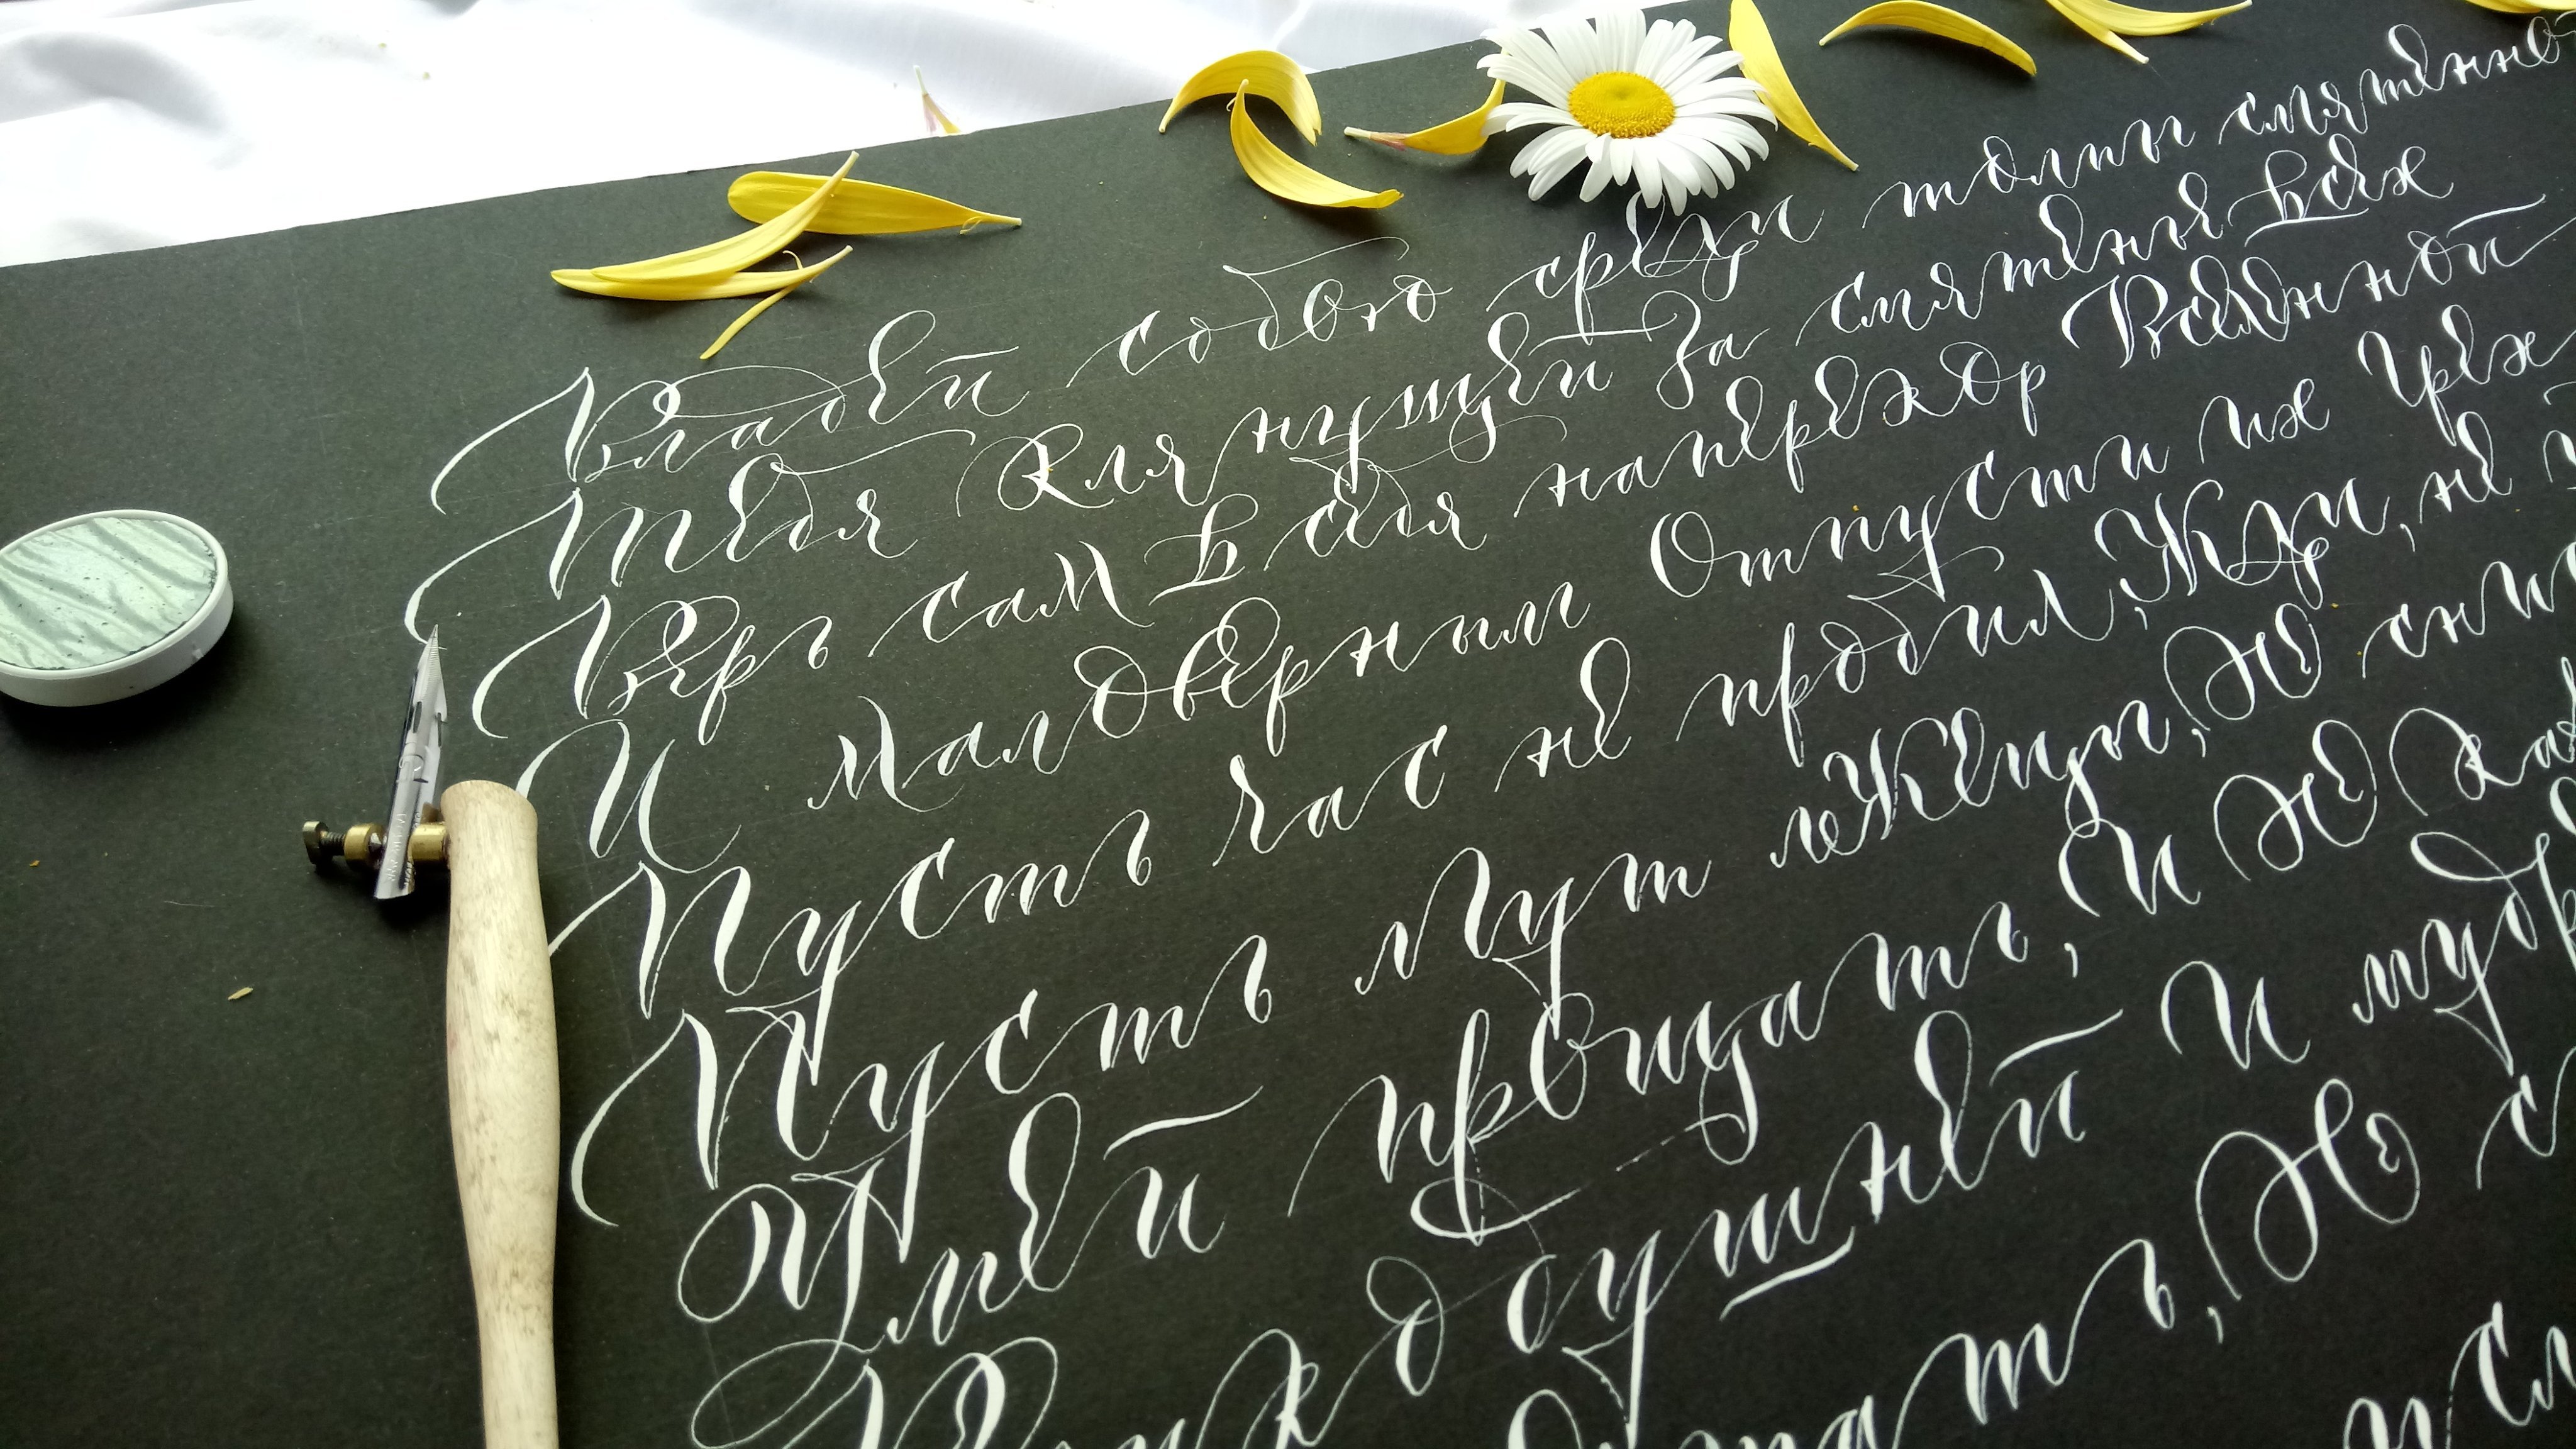 Владей собою среди толпы смятенно
Тебя Клянущей За смятенье всех
Верь сам в себя наперекор Вселенной
И маловерным Отпусти их грех
Пусть час не пробил, Жди, не
Пусть лгут лЖецы, Не сни
Умей прощать, И Не каж
Великодушней И мудр
тать, Не с